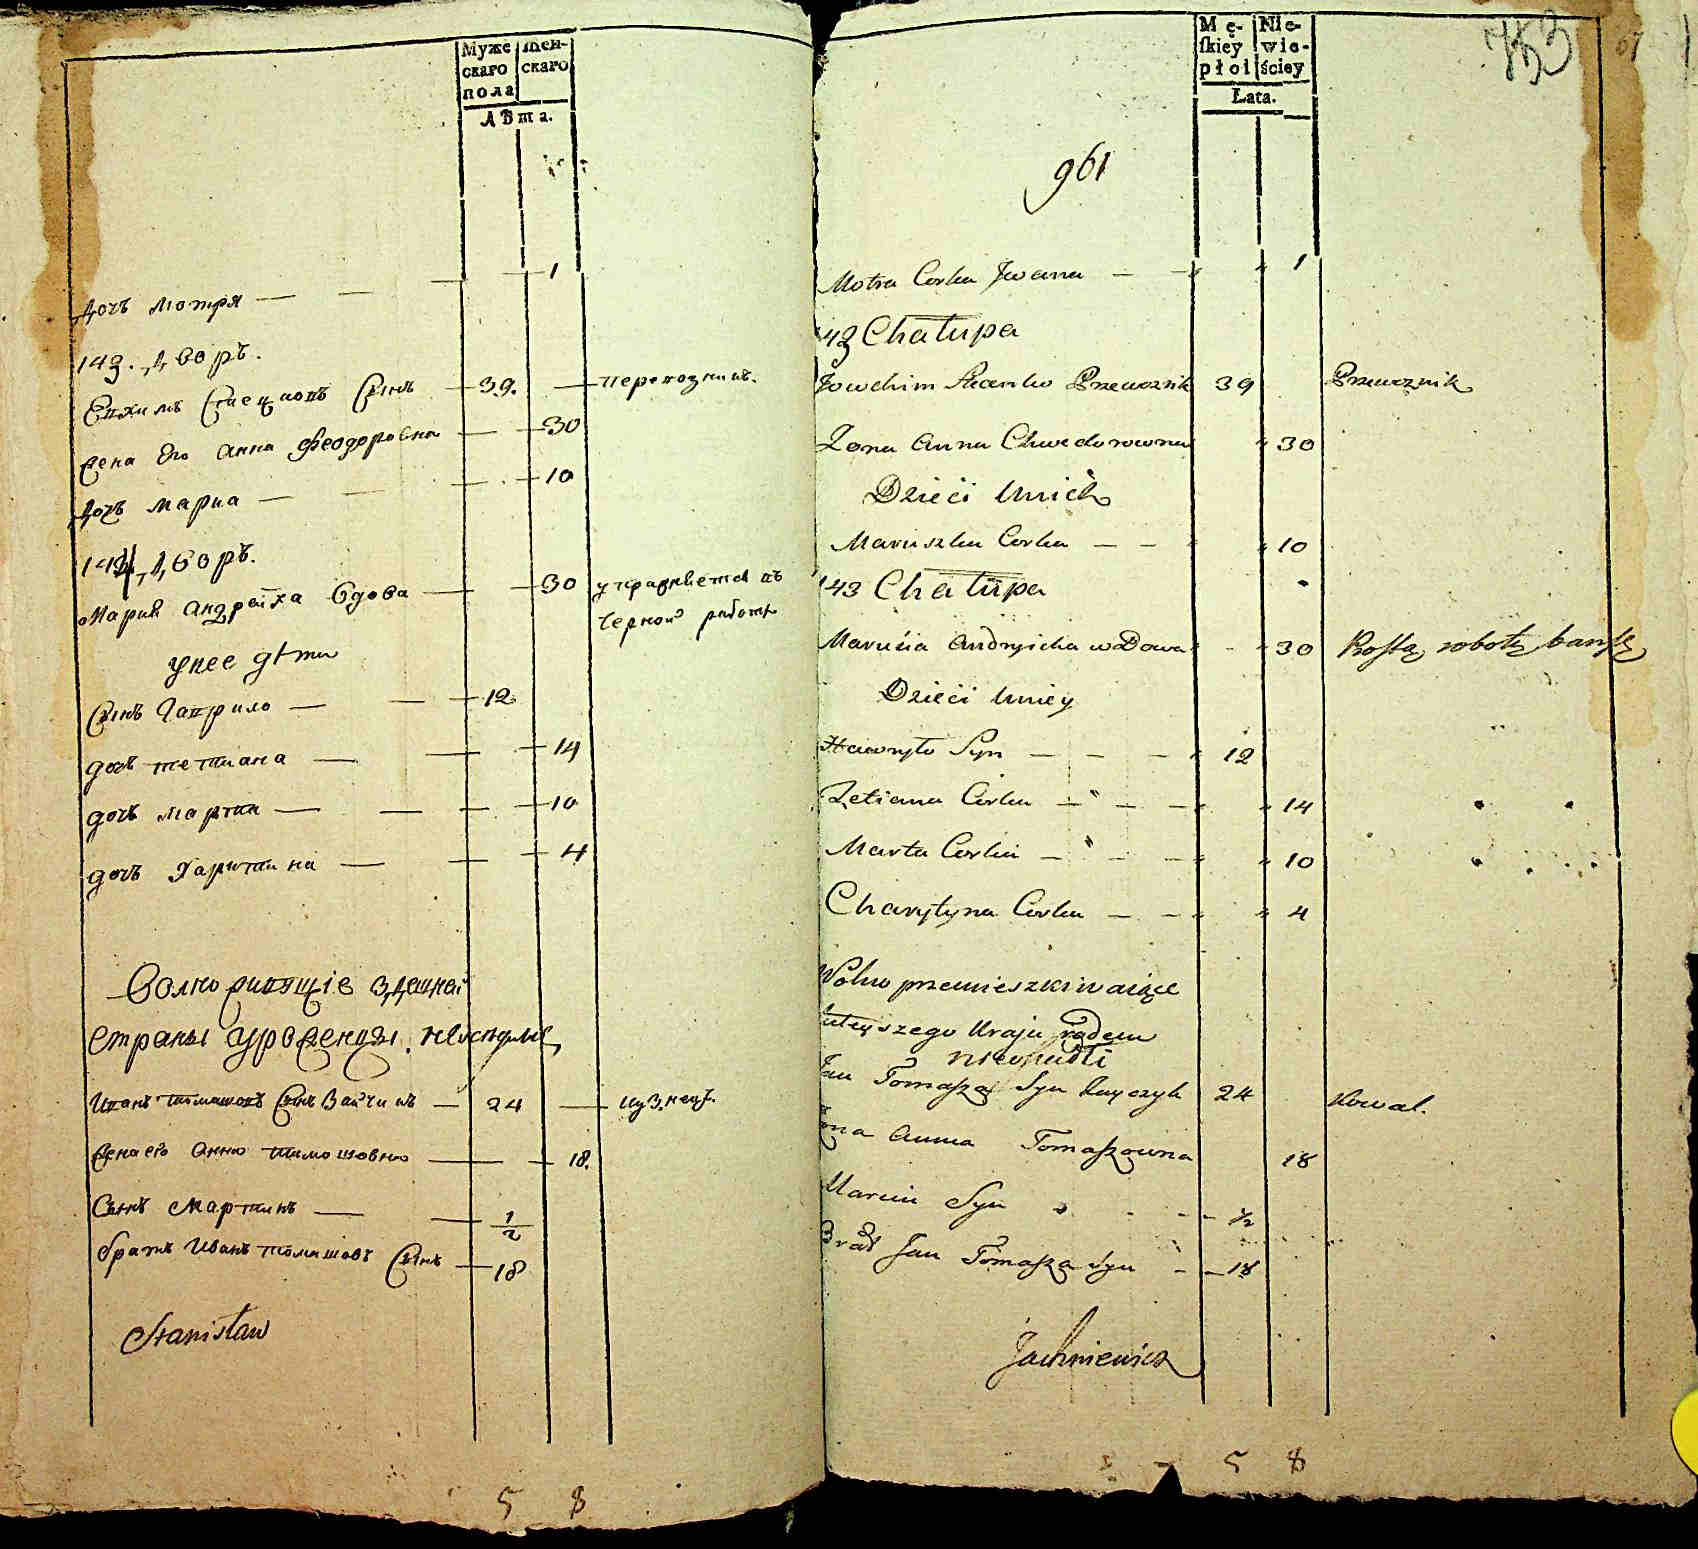 Муже
скаго
пола
Жен-
скаго
Лѣта.
Дочь Мотря 1
143. Дворъ.
Ефимъ Стецковъ Сынъ 39. перевозникъ.
Жена Его Анна Феодоровна 30
Дочь Мария 10
144 Дворъ.
Мария Андреиха Вдова 30 упражняется въ
черной работе
у нее дѣти
Сынъ Гаврило 12
дочь Тетиана 14
дочь Марта 10
дочь Харитина 4
Волно живущіе здешней
страны уроженцы
Иванъ Томашовъ Сынъ 24 кузнецъ.
Жена его Анна Томашовна 18.
Сынъ Мартинъ 1/2
братъ Иванъ Томашовъ Сынъ 18
Stanisław
5 8
Mę-
skiey
płci
Nie-
wie-
ściey
Lata.
753
67
961
Motra Corka Jwana 1
143 Chałupa
Jowchim Przewoznik 39 Przewoznik
Zona Anna Chwedorowna 30
Dzieci Unich
Maruszka Corka 10
143 Chałupa
Marusia Andryicha wDowa 30 Rostą robotę bawi się
Dzieci Uniey
Hawryło Syn 12
Tetiana Corka 14
Marta Corka 10
Charytyna Corka 4
Wolno przemieszkiwaiące
tuteyszego Kraju rodem
Jan Tomasza Syn 24 Kowal.
Zona Anna Tomaszowna 18
Marcin Syn 1/2
Brat Jan Tomasza Syn 18
Jachniewicz
5 8